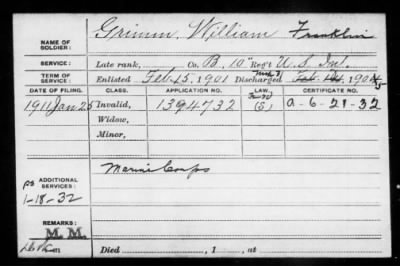 NAME OF SOLDIER: Grimm, William Franklin
SERVICE: Late rank, Co. B, 10" Reg't U.S. Inf.
TERM OF SERVICE: Enlisted Feb. 15, 1901 Discharged Feb. 1904
DATE OF FILING. CLASS. APPLICATION NO. LAW. CERTIFICATE NO.
1911 Jan 25 Invalid, 1394732 (S) A-6-21-32
Widow,
Minor,
ADDITIONAL SERVICES: Marine Corps
1-18-32
REMARKS: M. M.
Died , 1 , at